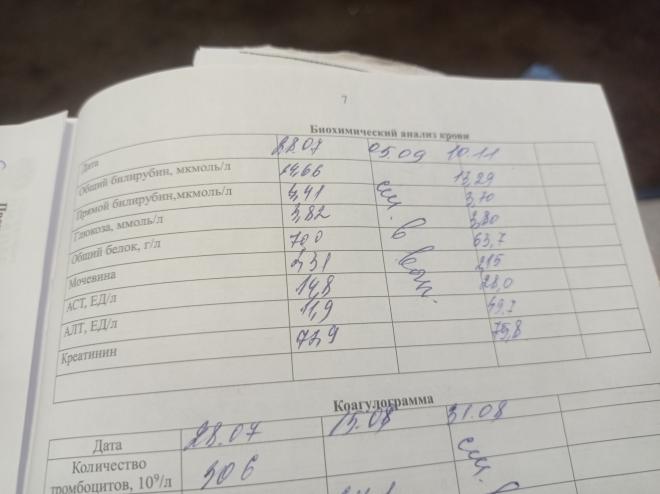 7
Биохимический анализ крови
Дата 28.07 05.09 10.11
Общий билирубин, мкмоль/л 13,29
Прямой билирубин,мкмоль/л 4,41 см. 3,70
Глюкоза, ммоль/л 3,82 3,80
Общий белок, г/л 70 0 в 63,7
Мочевина 2,31 2,15
АСТ, ЕД/л 14,8 28,0
АЛТ, ЕД/л 11,9 49,7
Креатинин 72,9 75,8
Коагулограмма
Дата 28.07 15.08 31.08
Количество
тромбоцитов, 10⁹/л 306 см.